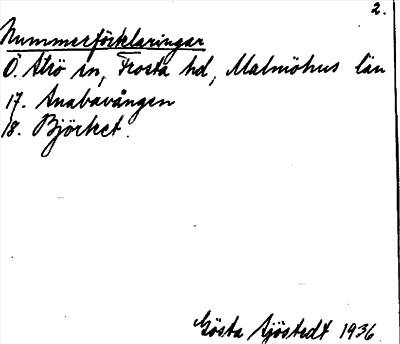 2.
Nummerförklaringar
Ö. Strö sn, Frosta hd, Malmöhus län
17. Anabavången
18. Björket.
Gösta Sjöstedt 1936